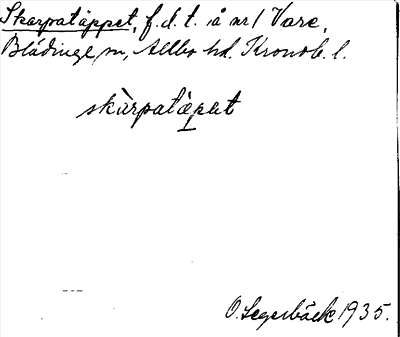 Skarpatäppet, f.d.t. å nr 1 Vare,
Blädinge sn, Allbo hd. Kronob. l.
skàrpatä̀pet
O. Segerbäck 1935.